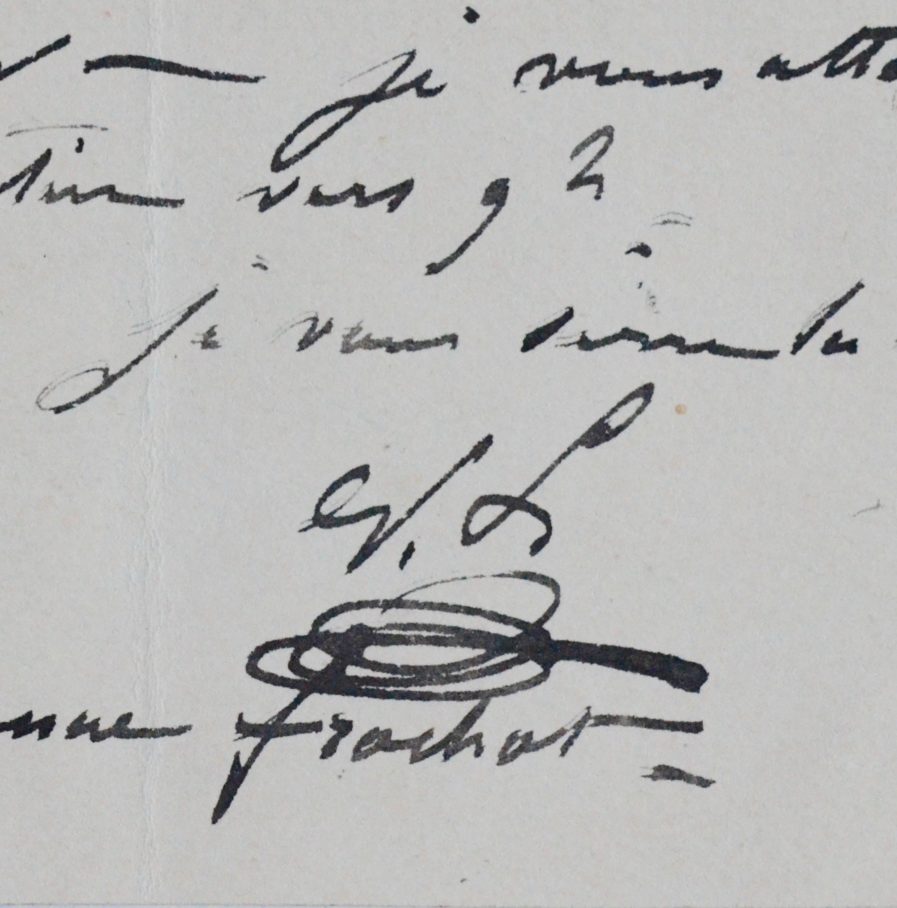 — je vous atte
tin vers 9 h
je vous serre la
G. L
nue frochot —